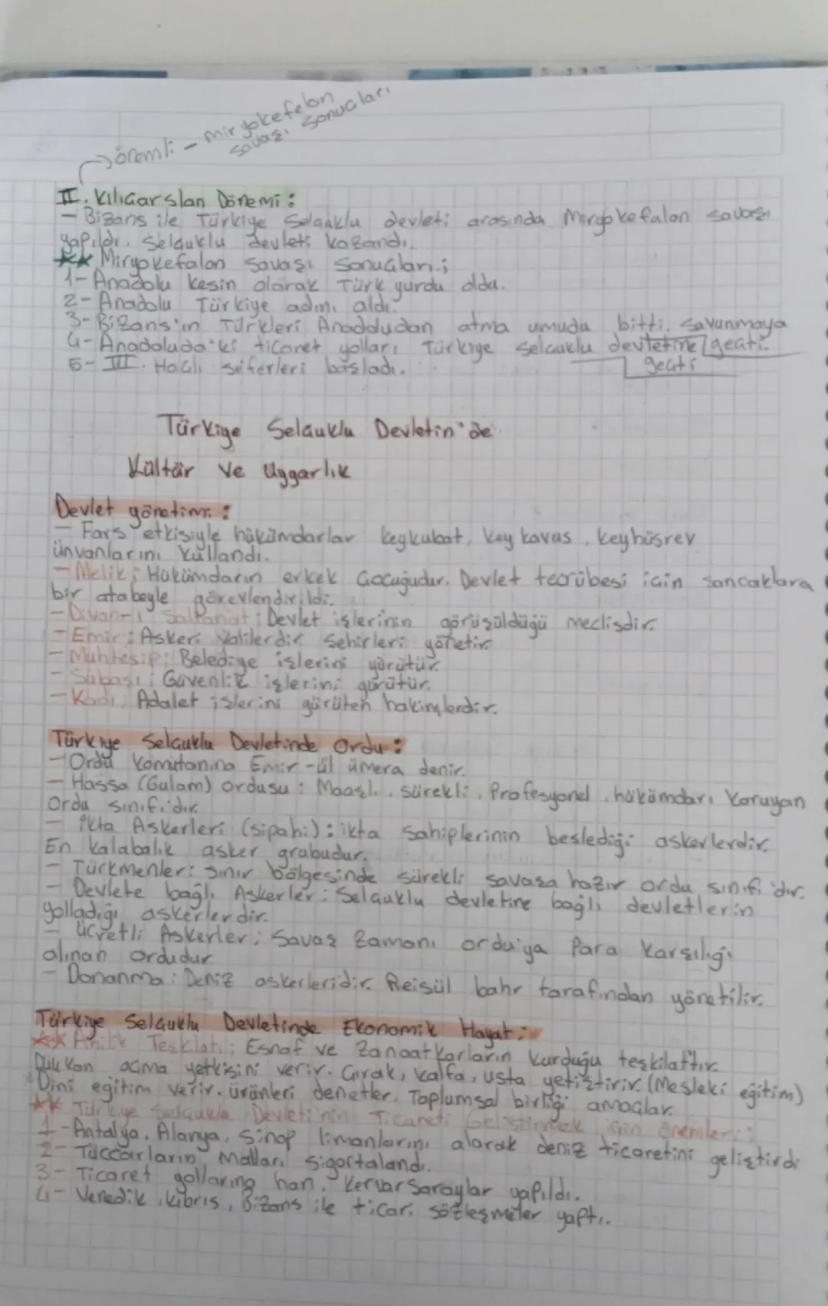 önemli - miryokefelon
savaşı sonuçları
II. Kılıçarslan Dönemi:
- Bizans ile Türkiye Selçuklu devleti arasında Miryokefalon savaşı
yapıldı. Selçuklu devleti kazandı.
★★ Miryokefalon Savaşı Sonuçları:
1- Anadolu kesin olarak Türk yurdu oldu.
2- Anadolu Türkiye adını aldı.
3- Bizans'ın Türkleri Anadoludan atma umudu bitti. Savunmaya geçti
4- Anadoluda'ki ticaret yolları Türkiye Selçuklu devletine geçti.
5- III. Haçlı seferleri başladı.
Türkiye Selçuklu Devletin'de
Kültür ve Uygarlık
Devlet yönetimi:
- Fars etkisiyle hükümdarlar keykubat, key kavus, keyhüsrev
ünvanlarını kullandı.
- Melik: Hükümdarın erkek çocuğudur. Devlet tecrübesi için sancaklara
bir atabeyle görevlendirildi.
- Divan-ı Saltanat: Devlet işlerinin görüşüldüğü meclisdir.
- Emir: Askeri Valilerdir. Şehirleri yönetir
- Muhtesip: Belediye işlerini yürütür.
- Subaşı: Güvenlik işlerini yürütür.
- Kadı: Adalet işlerini yürüten hakimlerdir.
Türkiye Selçuklu Devletinde Ordu:
- Ordu komutanına Emir-ül ümera denir.
- Hassa (Gulam) Ordusu: Maaşlı, sürekli, Profesyonel, hükümdarı Koruyan
Ordu sınıfıdır
- İkta Askerleri (sipahi): ikta sahiplerinin beslediği askerlerdir.
En kalabalık asker grubudur.
- Türkmenler: Sınır bölgesinde sürekli savaşa hazır ordu sınıfı'dır.
- Devlete bağlı Askerler: Selçuklu devletine bağlı devletlerin
yolladığı askerlerdir.
- Ücretli Askerler: Savaş Zamanı ordu'ya Para Karşılığı
alınan ordudur
- Donanma: Deniz askerleridir. Reisül bahr tarafından yönetilir.
Türkiye Selçuklu Devletinde Ekonomik Hayat:
★★ Ahilik Teşkilatı: Esnaf ve Zanaatkarların kurduğu teşkilattır.
Dükkan açma yetkisini verir. Çırak, kalfa, usta yetiştirir. (Mesleki eğitim)
Dini eğitim verir. ürünleri denetler. Toplumsal birliği amaçlar.
★★ Türkiye Selçuklu Devleti'nin Ticareti Geliştirmek için önemleri:
1- Antalya, Alanya, Sinop limanlarını alarak deniz ticaretini geliştirdi
2- Tüccarların malları sigortalandı.
3- Ticaret yollarına han, kervansaraylar yapıldı.
4- Venedik, Kıbrıs, Bizans ile ticari sözleşmeler yaptı.